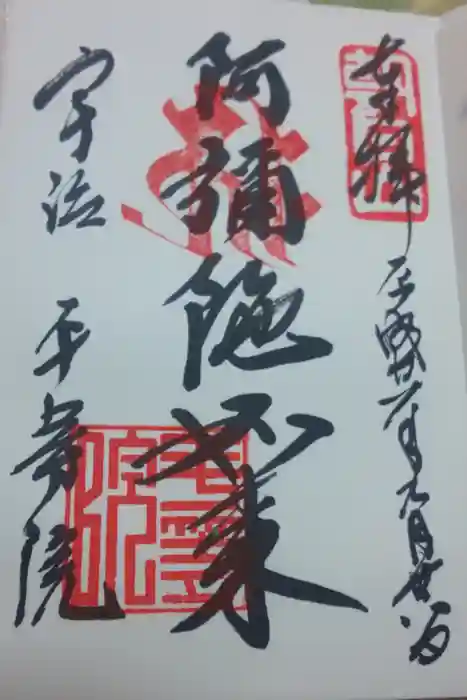 奉拝 平成廿一年九月廿四日
阿彌陀如来
宇治 平等院